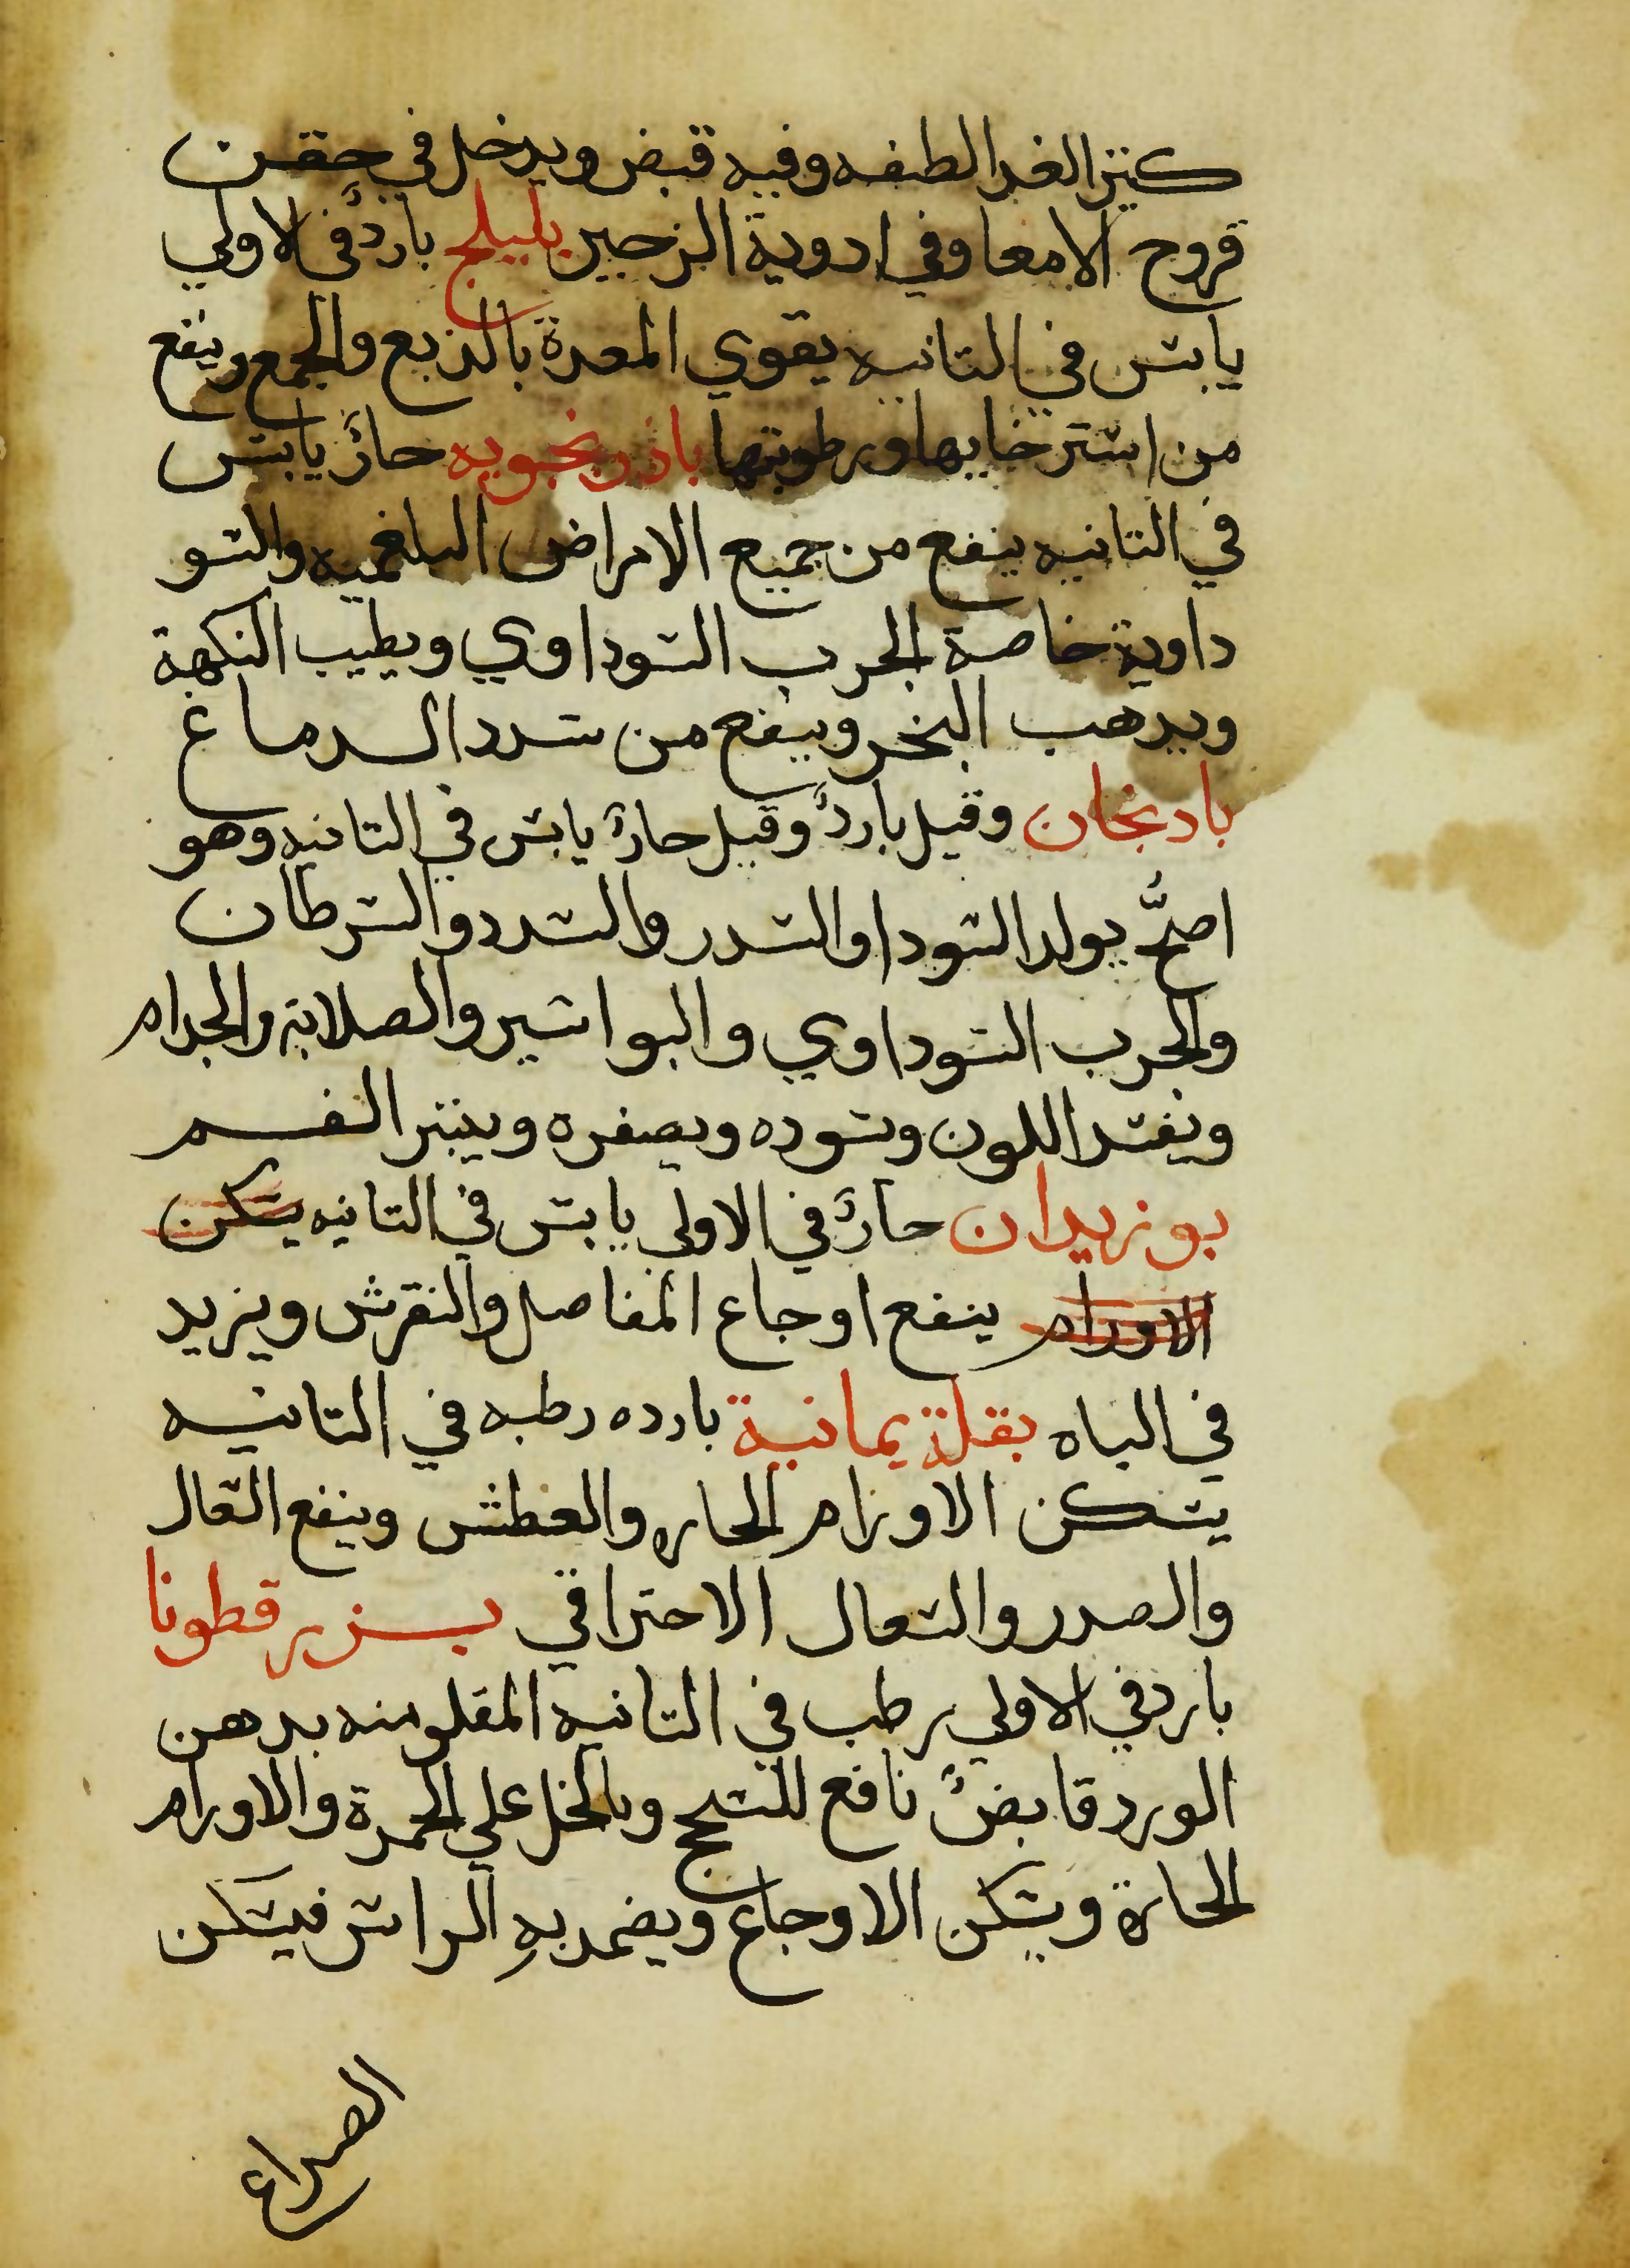 كثير الغدا لطفه وفيه قبض ويدخل في حقن
قروح الامعا وفي ادوية الزحير بليلج باردٌ في الاولي
يابس في التانيه يقوي المعدة بالدبع والجمع وينفع
من استرخايها ورطوبتها باذرنجويه حارٌ يابس
في التانيه ينفع من جميع الامراض البلغميه والسو
داوية خاصة الجرب السوداوي ويطيب النكهة
ويدهب البخر وينفع من سدد الدماغ
بادنجان وقيل باردٌ وقيل حارٌ يابس في التانيه وهو
اصحُّ يولد السودا والسدر والسدد والسرطان
والجرب السوداوي والبواسير والصلابة والجدام
ويفسد اللون ويسوده ويصفره وينتن الفم
بوزيدان حارٌ في الاولي يابس في التانيه يسكن
الاورام ينفع اوجاع المفاصل والنقرس ويزيد
في الباه بقلة يمانية بارده رطبه في التانيه
يسكن الاورام الحاره والعطش وينفع السعال
والصدر والسعال الاحتراقي بزر قطونا
بارد في الاولي رطب في التانيه المقلو منه بدهن
الورد قابضٌ نافع للسحج وبالخل علي الحمرة والاورام
الحارة ويسكن الاوجاع ويضمد بهِ الراس فيسكن
الصداع